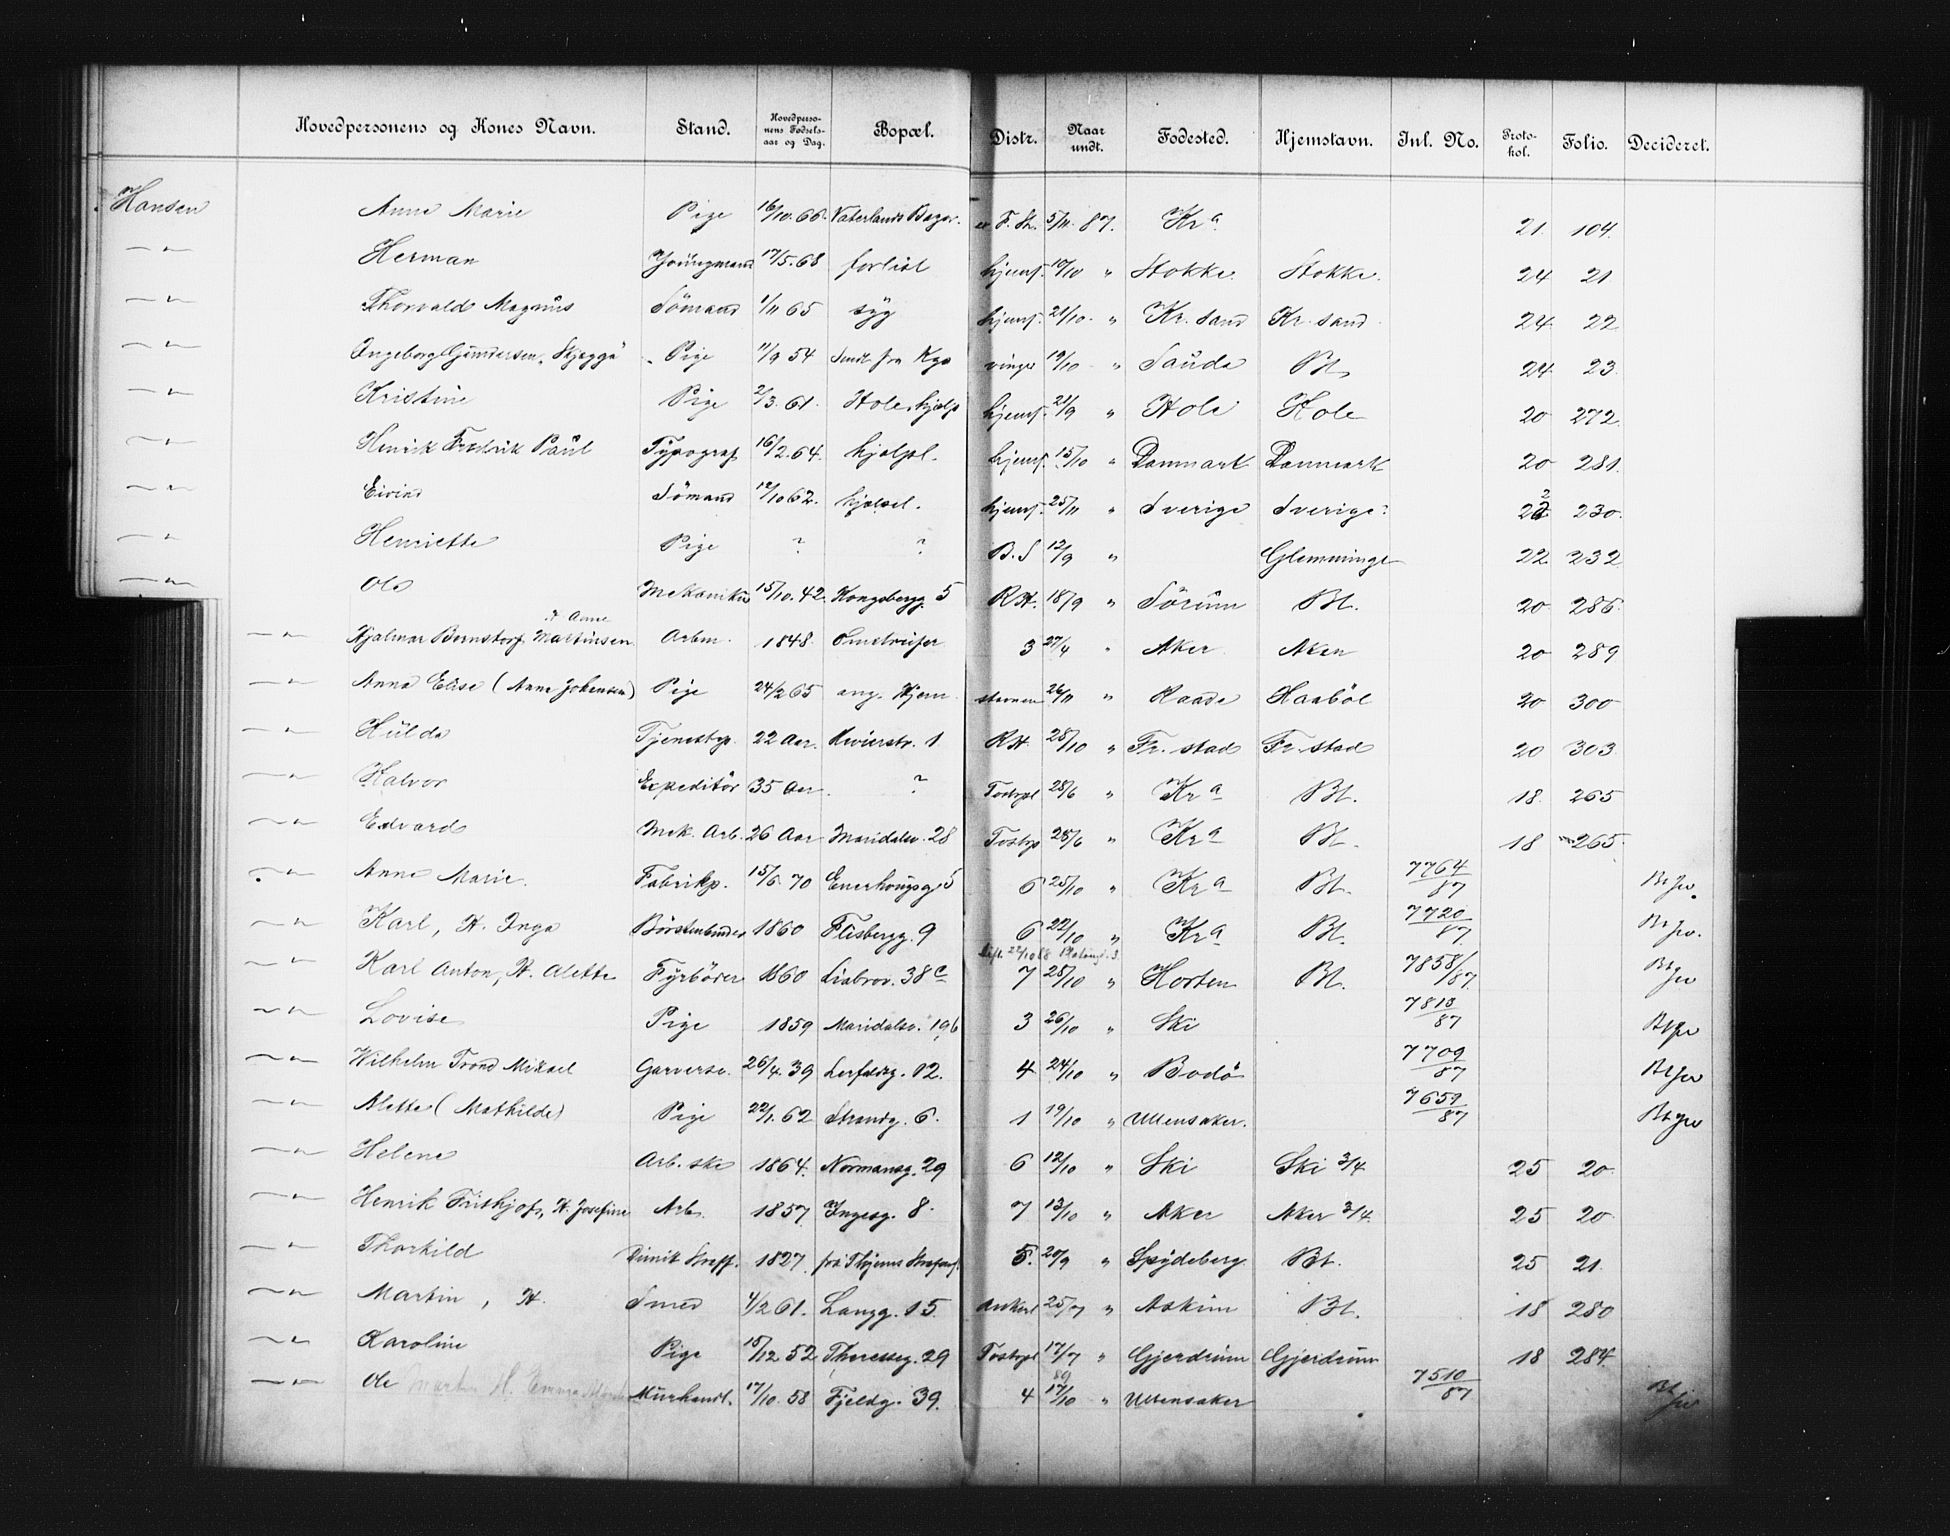 Hovedpersonens og Kones Navn. Stand. Hovedperso-nens Fødsels-aar og Dag. Bopæl. Distr. Naar undt. Fødested. Hjemstavn. Inl. No. Proto-kol. Folio. Decideret.
Hansen Anne Marie Pige 16/10.66. Vaterlands Bazar. F. St. 5/11. 87. Kra 21. 104.
—"— Herman Youngmand 17/5.68 forlist hjemf. 10/10 " Stokke Stokke. 24 21
—"— Thorvald Magnus Sømand 1/11 65 syg hjemf. 21/10 " Kr. sand Kr. sand 24 22
—"— Ingeborg Gundersen, Skjeggø Pige 11/9 54 Sendt fra Kgs vinger 19/10 " Sauda Bt. 24 23
—"— Kristine Pige 2/3.61. Hole, hjælp hjemf. 21/9 " Hole Hole 20 272
—"— Henrik Fredrik Paul Typograf 16/2.64. hjælpl. hjemf. 15/10 " Danmark Danmark 20 281.
—"— Eivind Sømand 12/10 62. hjælpel. hjemf. 25/11 " Sverige Sverige? 22 230.
—"— Henriette Pige ? ? B.S 12/9 " Glemminge 22 232
—"— Ole Mekaniker 15/10.42. Kongsbergg. 5 RH. 18/9 " Sørum Bt. 20 286.
—"— Hjalmar Bernstorf Martinsen H Anne Arbm. 1848. Omstreifer 3 27/4 " Aker Aker 20 289
—"— Anna Elise (Anne Johensen) Pige 24/2 65 ang. Hjem stavnen 26/11 " Raade Haabøl 20 300
—"— Hulda Tjenestep. 22 Aar. Revierstr. 1 RH. 28/10 " Fr. stad Fr. stad 20 303
—"— Halvor Expeditør 35 Aar. ? Tostrpl 28/6 " Kra Bt. 18. 265
—"— Edvard Mek. Arb. 26 Aar Maridalsv. 28 Tostrp 28/6 " Kra Bt. 18 265.
—"— Anne Marie. Fabrikp. 15/6. 70 Enerhougsg. 5 6 25/10 " Kra Bt. 7764/87
—"— Karl, H. Inga Børstenbinder 1860 Flisbergg. 9 6 22/10 " Kra Bt. 7720/87
—"— Karl Anton, H. Alette Fyrbøder 1860 Liabrov. 38c 7 28/10 " Horten Bt. 7858/87
—"— Lovise Pige 1859 Maridalsv. 196 3 26/10 " Ski 7818/87
—"— Wilhelm Trond Mikael Garversv. 26/4.39 Lerfaldsg. 12. 4 24/10 " Bodø 7709/87
—"— Alette (Mathilde) Pige 22/1.62 Strandg. 6. 1 19/10 " Ullensaker. 7659/87
—"— Helene Arb. ske 1864. Normansg. 29 6 12/10 " Ski Ski 3/4 25 20
—"— Henrik Frithjof, H. Josefine Arb. 1857 Ingesg. 8. 7 13/10 " Aker Aker 3/4 25 20
—"— Thorkild Dimit Straff. 1827 fra Thjems Strafanst. 5. 20/9 " Spydeberg Bt. 25 21.
—"— Martin, H. Smed 4/2 61. Langg. 15. Ankerl 25/7 " Askim Bt. 18 280
—"— Karoline Pige 18/12 52 Theresesg. 29 Tostrpl 17/7 " Gjerdrum Gjerdrum 18 284.
—"— Ole Martin H. Emma Murhandl. 17/10.58 Fjeldg. 39. 4 17/10 " Ullensaker 7510/87